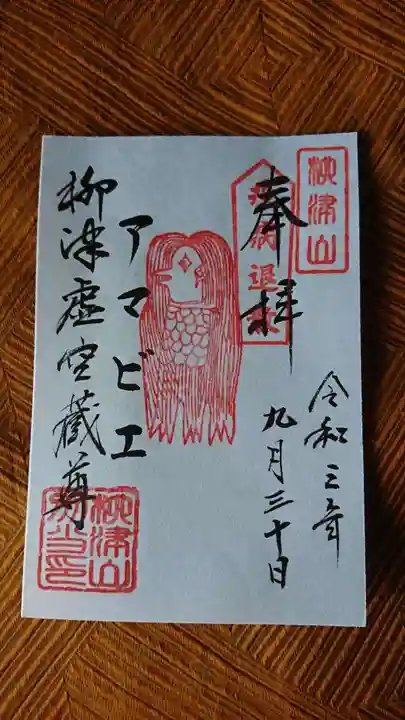 柳津山
奉拝
疫病退散
令和三年
九月三十日
アマビエ
柳津虚空蔵尊
柳津山